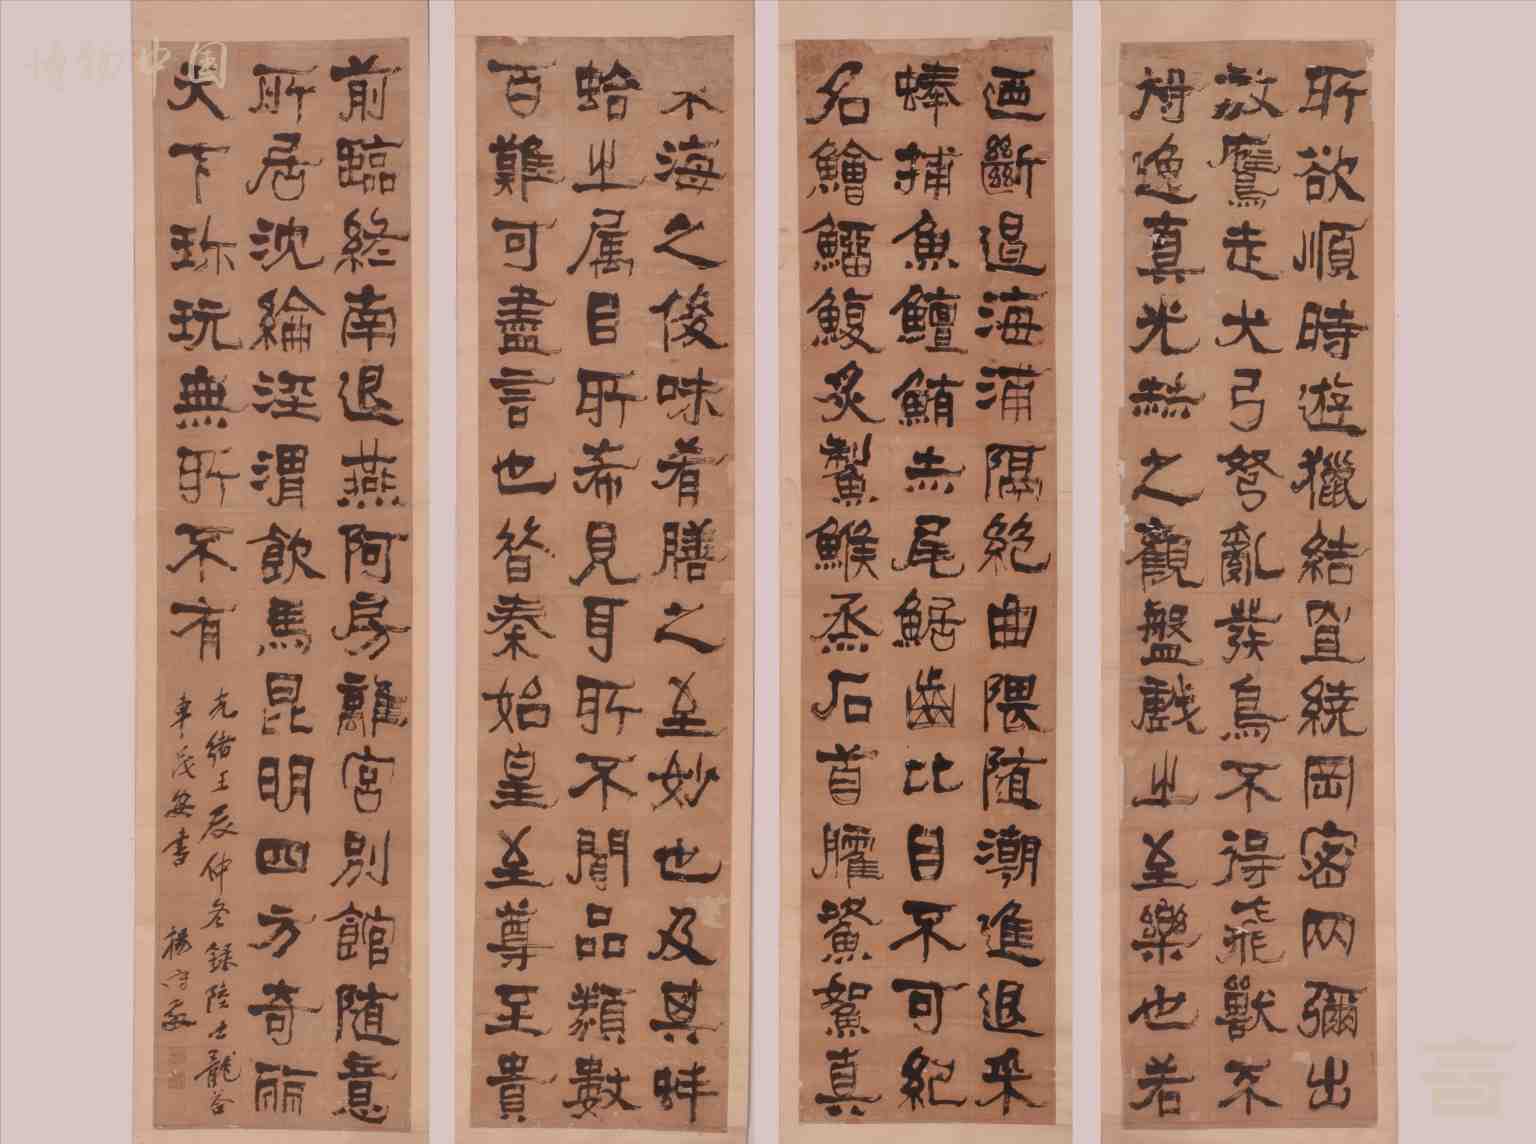 所欲順時遊獵結罝繞岡密网彌出
放鷹走犬弓弩亂發鳥不得飛獸不
得逸真光赫之觀盤戲之至樂也若
迺斷遏海浦隔絕曲隈随潮進退采
蜯捕魚鱣鮪赤尾鯤齒比目不可紀
名鱠鰡鰒炙鮆鯸烝石首臛鯊鴽真
東海之俊味肴膳之至妙也及其蚌
蛤之属目所希見耳所不聞品類數
百難可盡言也昔秦始皇至尊至貴
前臨終南退燕阿房離宮別館随意
所居沈綸涇渭飲馬昆明四方奇麗
天下珍玩無所不有
光緒壬辰仲冬錄陸士龍答
車茂安書 楊守敬
博物中国